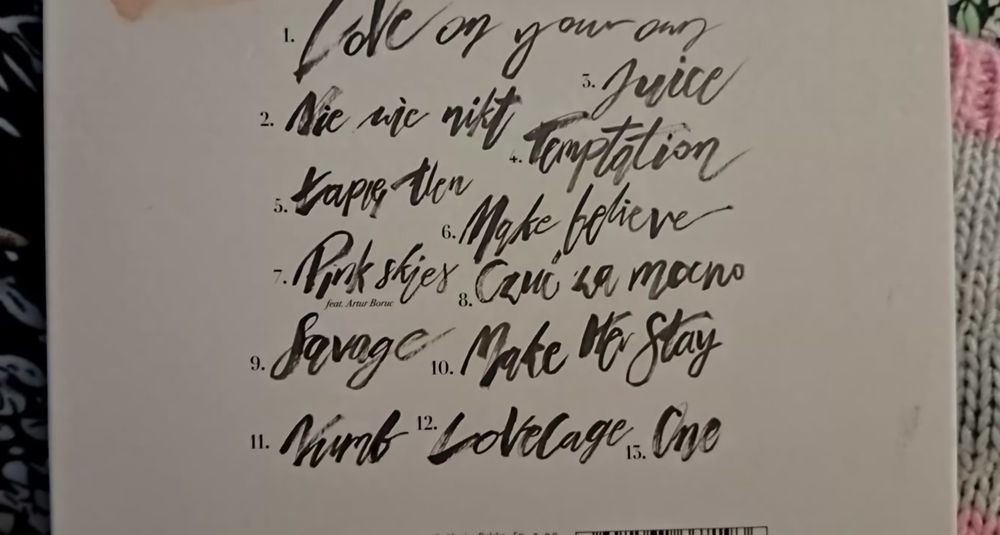 1. Love on your own
3. Juice
2. Nie wie nikt
4. Temptation
5. Łapię tlen
6. Make believe
7. Pink skies
feat. Artur Boruc
8. Czuć za mocno
9. Savage
10. Make Her Stay
11. Numb
12. LoveCage
13. One